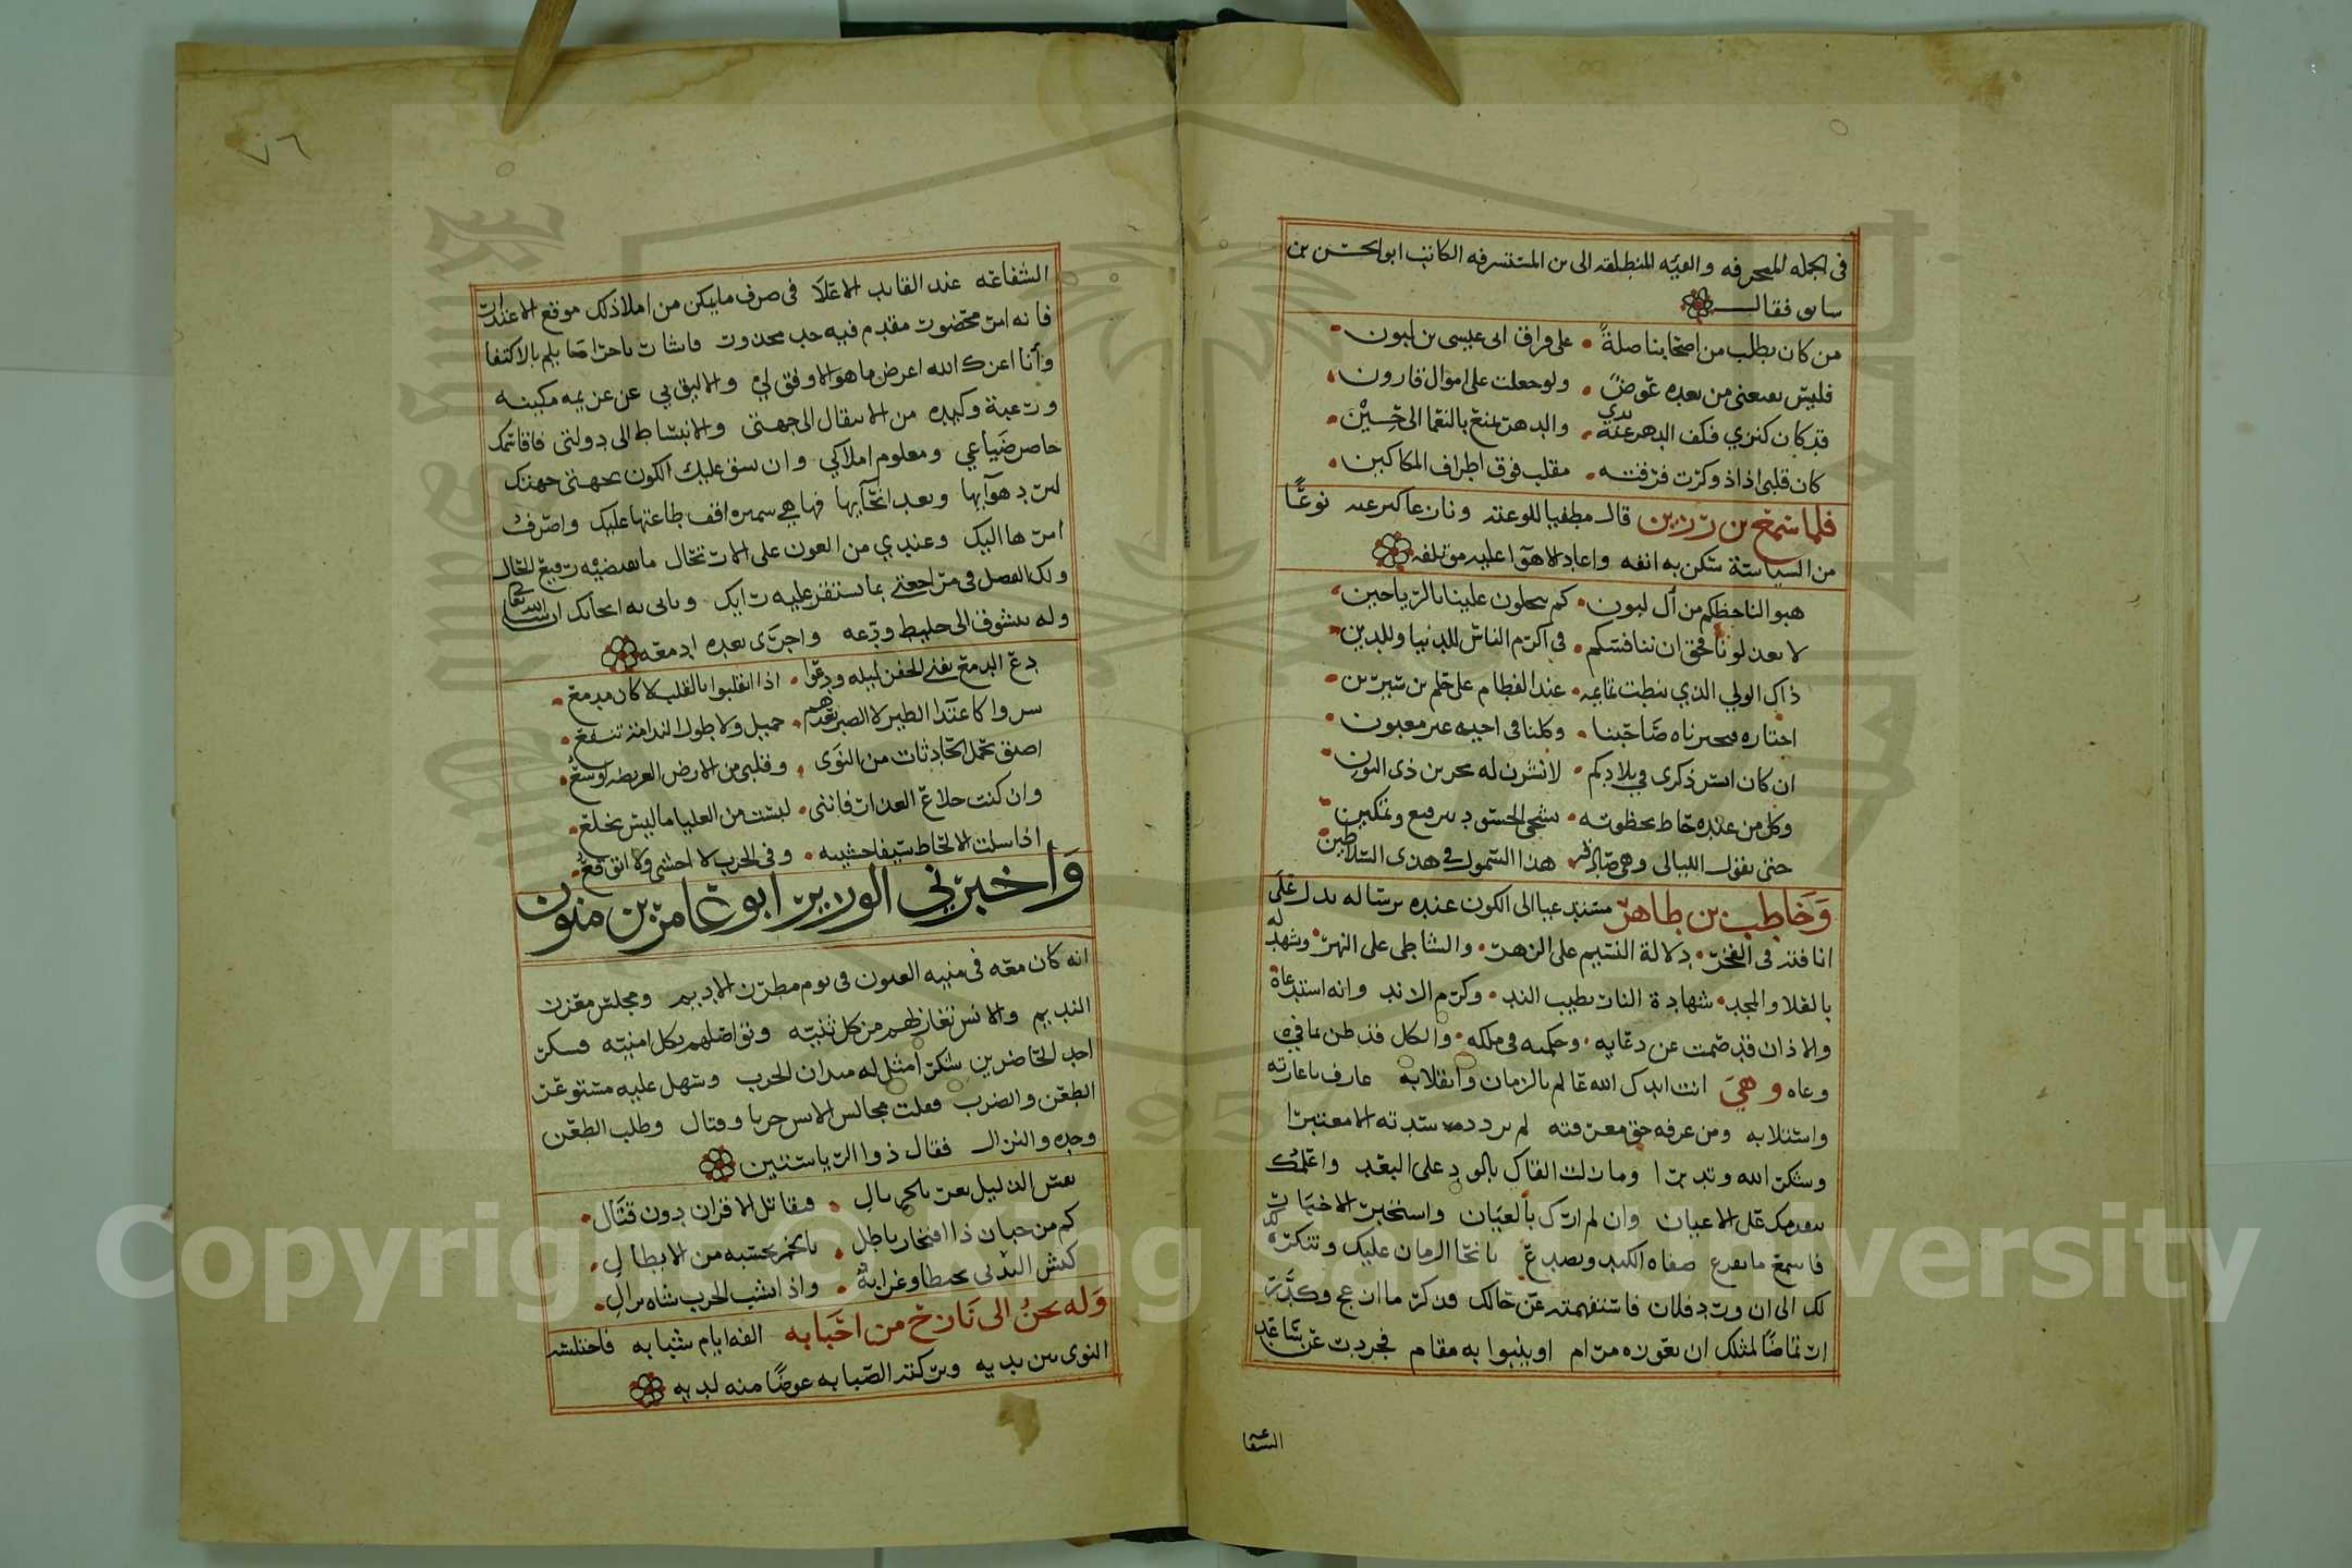 في الجمله المنحرفه والفيه المنطلقه الى من المستشرفه الكاتب ابو الحسن بن
سابق فقال
من كان يطلب من اصحابنا صلةً • على فراق ابى عيسى بن لبون •
فليس يقنعنى من بعده عوضٌ • ولو جعلت على اموال قارون •
قد كان كنزي فكف الدهر عنه يدي • والدهر يمنع بالنعما الى حين •
كان قلبى اذا ذكرت فرقته • مقلب فوق اطراف السكاكين •
فلما سمع بن رزين قال مطفيا للوعته ونازعا كبر عنه نوعًا
من السياسة سكن به انفه واعاد الاهوا عليه مؤتلفه
هبوا لنا حظكم من آل لبون • كم تبخلون علينا بالرياحين •
لا تعذلونا فحق ان ننافسكم • في اكرم الناس للدنيا وللدين •
ذاك الولي الذي نيطت تمايمه • عند الفطام على علم بن سيرين •
اختاره فتخيرناه صاحبنا • وكلنا في اخيه غير مغبون •
ان كان انسر ذكرى في بلادكم • لانشرن له يحيى بن ذى النون •
وكل من عنده حاط بحظوته • شجى الحسود بترفيع وتمكين •
حتى تقول الليالى وهي صادقه هذا السموال في هذى السلاطين
وخاطب بن طاهر مستدعيا الى الكون عنده برساله تدل على
انافته فى الفخر • دلالة النسيم على الزهر • والشاطى على النهر • وشهد له
بالعلا والمجد • شهادة النار بطيب الند • وكرم الزند وانه استدعاه
والاذان قد صمت عن دعايه • وحكمه في ملكه • والكل قد ظن بما فى
وعاه وهي انت ايدك الله عالم بالزمان وانقلابه عارف باعارته
واستلابه ومن عرفه حق معرفته لم يزدد شدته الا معتبرا
وشكر الله وتدبرا وما زلت القاك بالود على البعد واعلمك
بتقدمك على الاعيان وان لم ارك بالعيان واستخبر الاخبار
فاسمع ما يقرع صفاه الكبد ويصدع بانحا الزمان عليك وتنكره
لك الى ان ورد فلان فاستفهمته عن حالك فذكر ما ازعج وكدر
ارتماضًا لمثلك ان يعوزه مرام او ينبوا به مقام فجردت عن ساعد
الشفا
٧٦
الشفاعه عند القايد الاعلا فى صرف ما يمكن من املا ذلك موقع الاعتذار
فانه امر محضور مقدم فيه حد محدور فاشار باحراضا يلم بالاكتفا
وأنا اعزك الله اعرض ما هو الاوفق لي والاليق بي عن عزيمه مكينه
ورغبة وكيده من الانتقال الى جهتى والانبساط الى دولتى فاقاسمك
حاصر ضياعي ومعلوم املاكي وان شق عليك الكون بجهتى جهتك
لبرد هوايها وبعد انحايها فها هي سميره اقف طاعتها عليك واصرف
امرها اليك وعندي من العون على الارتحال ما يقتضيه رفيع الحال
ولك الفضل في مراجعتي بما يستقر عليه رايك وياتى به انحاك ان شا الله تعالى
وله يتشوف الى خليط ودعه واجرى بعده ادمعه
دع الدمع يفني الجفن ليله ودعوا • اذا انقلبوا بالقلب لا كان مدمع •
سروا كاغتدا الطير لا الصبر بعدهم • جميل ولا طول الندامة تنفع •
اضيق بحمل الحادثات من النوى • وقلبى من الارض العريضه اوسع •
وان كنت خلاع العذار فاننى • لبست من العليا ما ليس يخلع •
اذا سلت الالحاظ سيفا خشيته • وفي الحرب لا اخشى ولا اتوقع •
وأخبرني الوزير ابو عامر بن منون
انه كان معه في منيه العيون في يوم مطرز الاديم ومجلس معزز
النديم والانس تغازلهم من كل ثنيه وتواصلهم بكل امنيه فسكر
احد الحاضرين سُكر أمثل له ميدان الحرب وسهل عليه مستوعر
الطعن والضرب فقلب مجالس الانس حربا وقتال وطلب الطعن
وحده والنزال فقال ذو الرياستين
نفس الذليل تعز بالجريال • فيقاتل الاقران دون قتال •
كم من جبان ذا افتخار باطل • بالخمر تحسبه من الابطال •
كبش الندى تخبطا وغرابةً • واذا تشب الحرب شاه نزال •
وله يحنُ الى نازح من احبابه الفه ايام شبابه فاختلسته
النوى من يديه وتركته الصبابه عوضًا منه لديه
Copyright © King Saud University